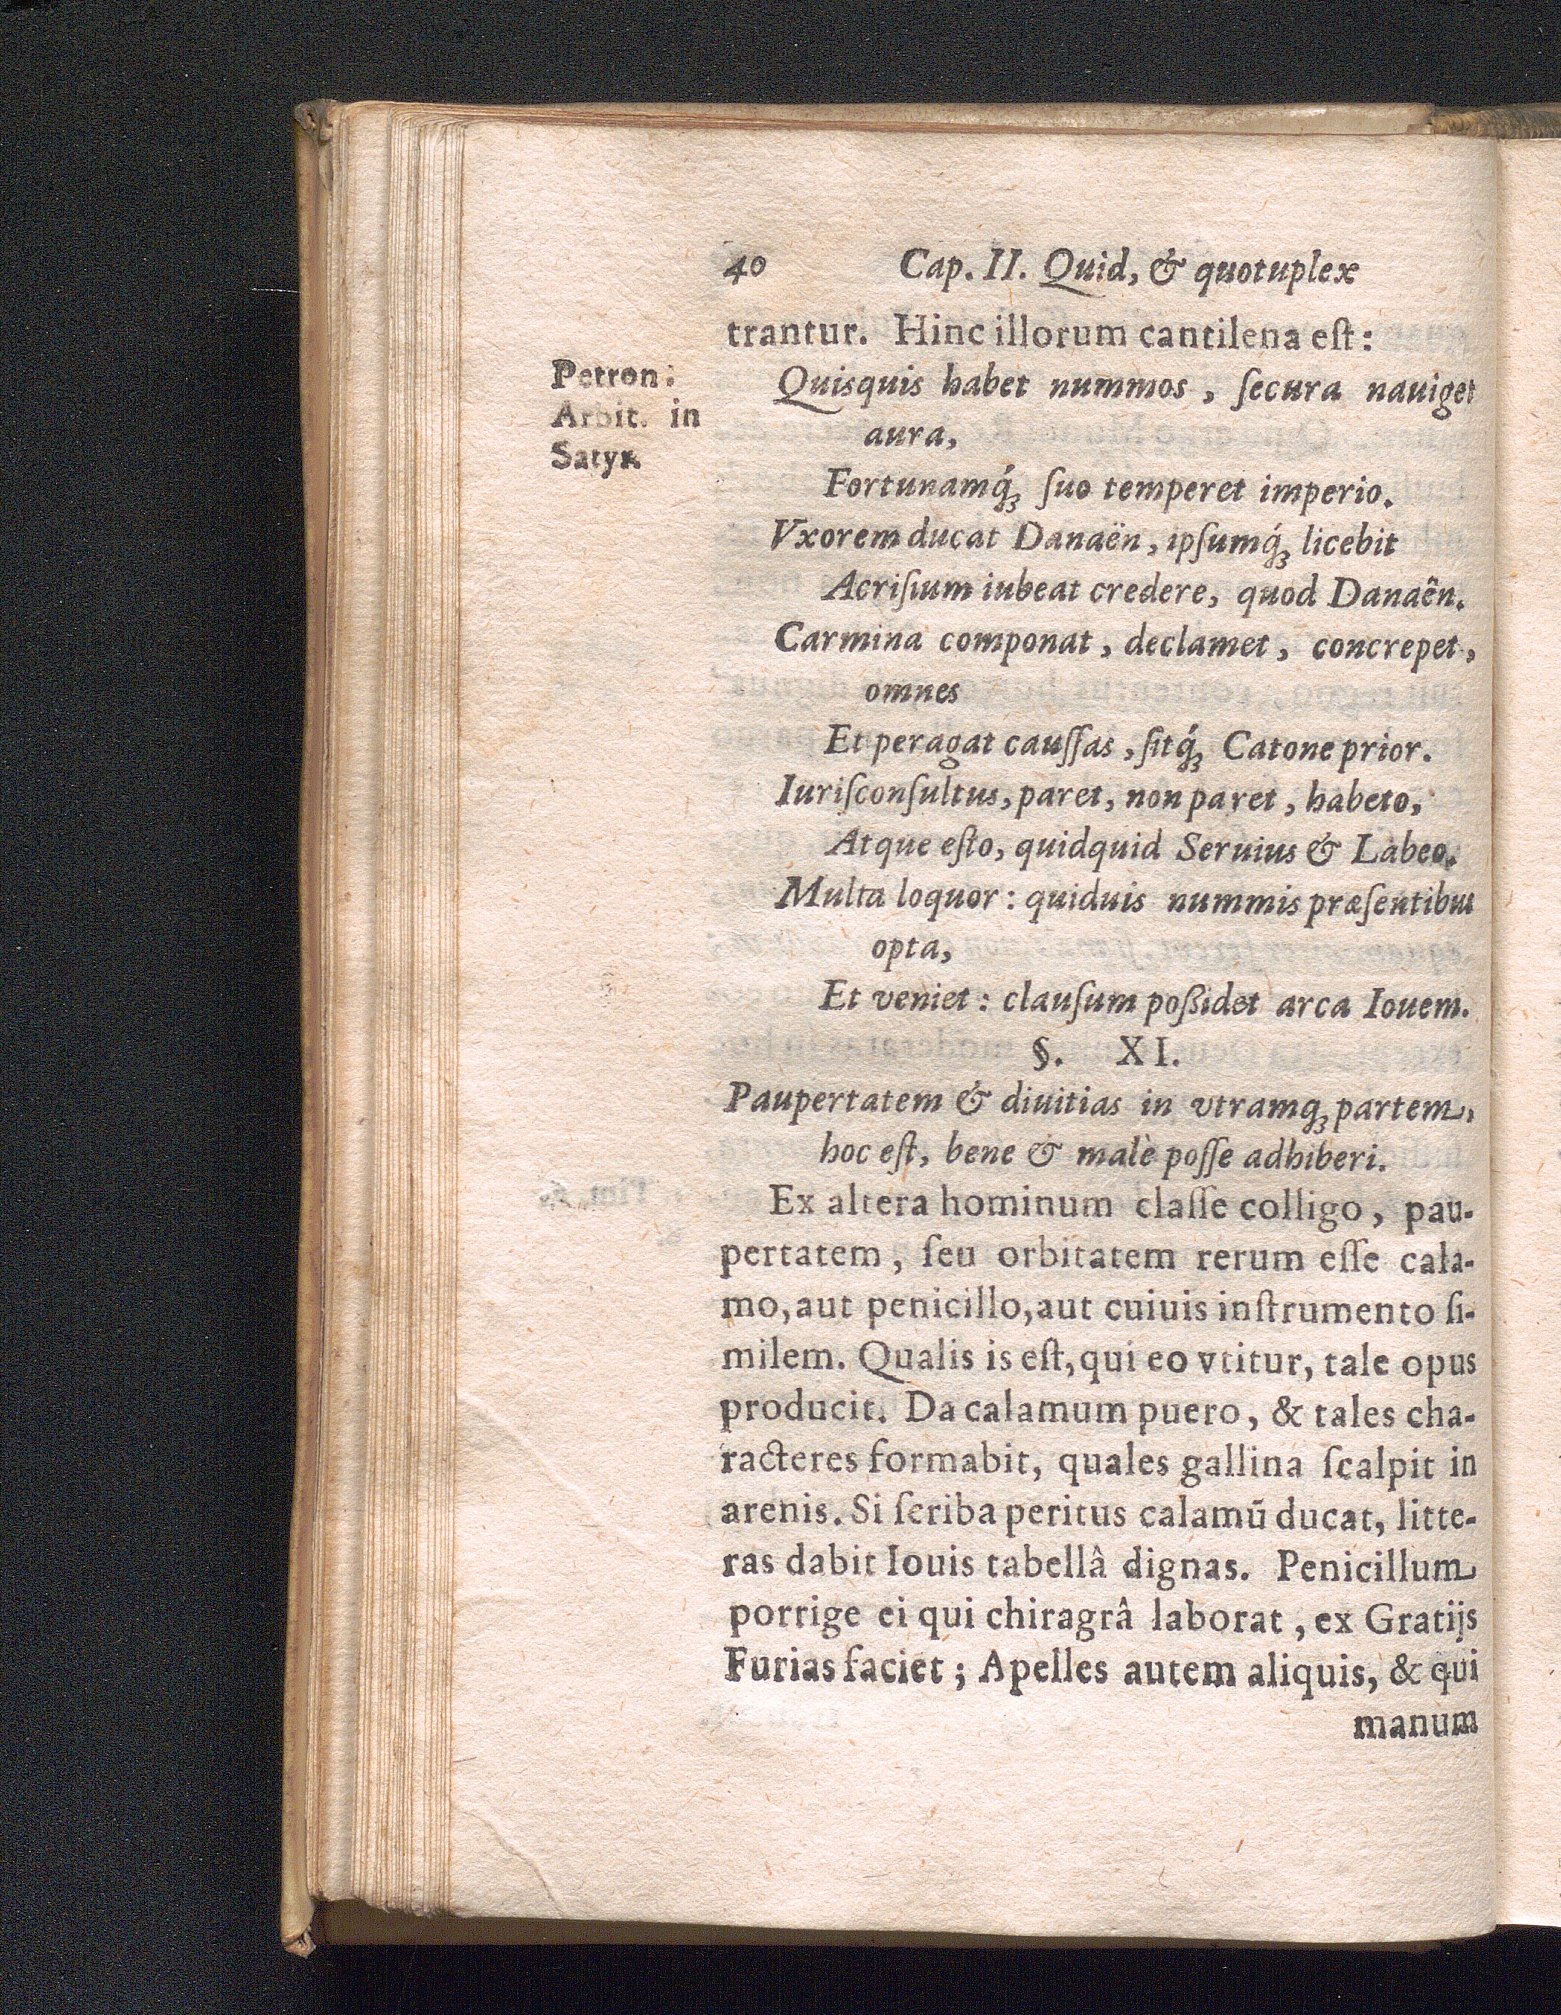 40 Cap. II. Quid, & quotuplex
trantur. Hinc illorum cantilena eſt:
Petron.
Arbit. in
Satyr.
Quisquis habet nummos, ſecura nauiget
aura,
Fortunamq́; ſuo temperet imperio.
Vxorem ducat Danaën, ipſumq́; licebit
Acriſium iubeat credere, quod Danaên.
Carmina componat, declamet, concrepet,
omnes
Et peragat cauſſas, ſitq́; Catone prior.
Iuriſconſultus, paret, non paret, habeto,
Atque eſto, quidquid Seruius & Labeo.
Multa loquor: quiduis nummis præſentibus
opta,
Et veniet: clauſum poßidet arca Iouem.
§. XI.
Paupertatem & diuitias in vtramq; partem,
hoc eſt, bene & malè poſſe adhiberi.
Ex altera hominum claſſe colligo, pau-
pertatem, ſeu orbitatem rerum eſſe cala-
mo, aut penicillo, aut cuiuis inſtrumento ſi-
milem. Qualis is eſt, qui eo vtitur, tale opus
producit. Da calamum puero, & tales cha-
racteres formabit, quales gallina ſcalpit in
arenis. Si ſcriba peritus calamū ducat, litte-
ras dabit Iouis tabellâ dignas. Penicillum
porrige ei qui chiragrâ laborat, ex Gratijs
Furias faciet; Apelles autem aliquis, & qui
manum